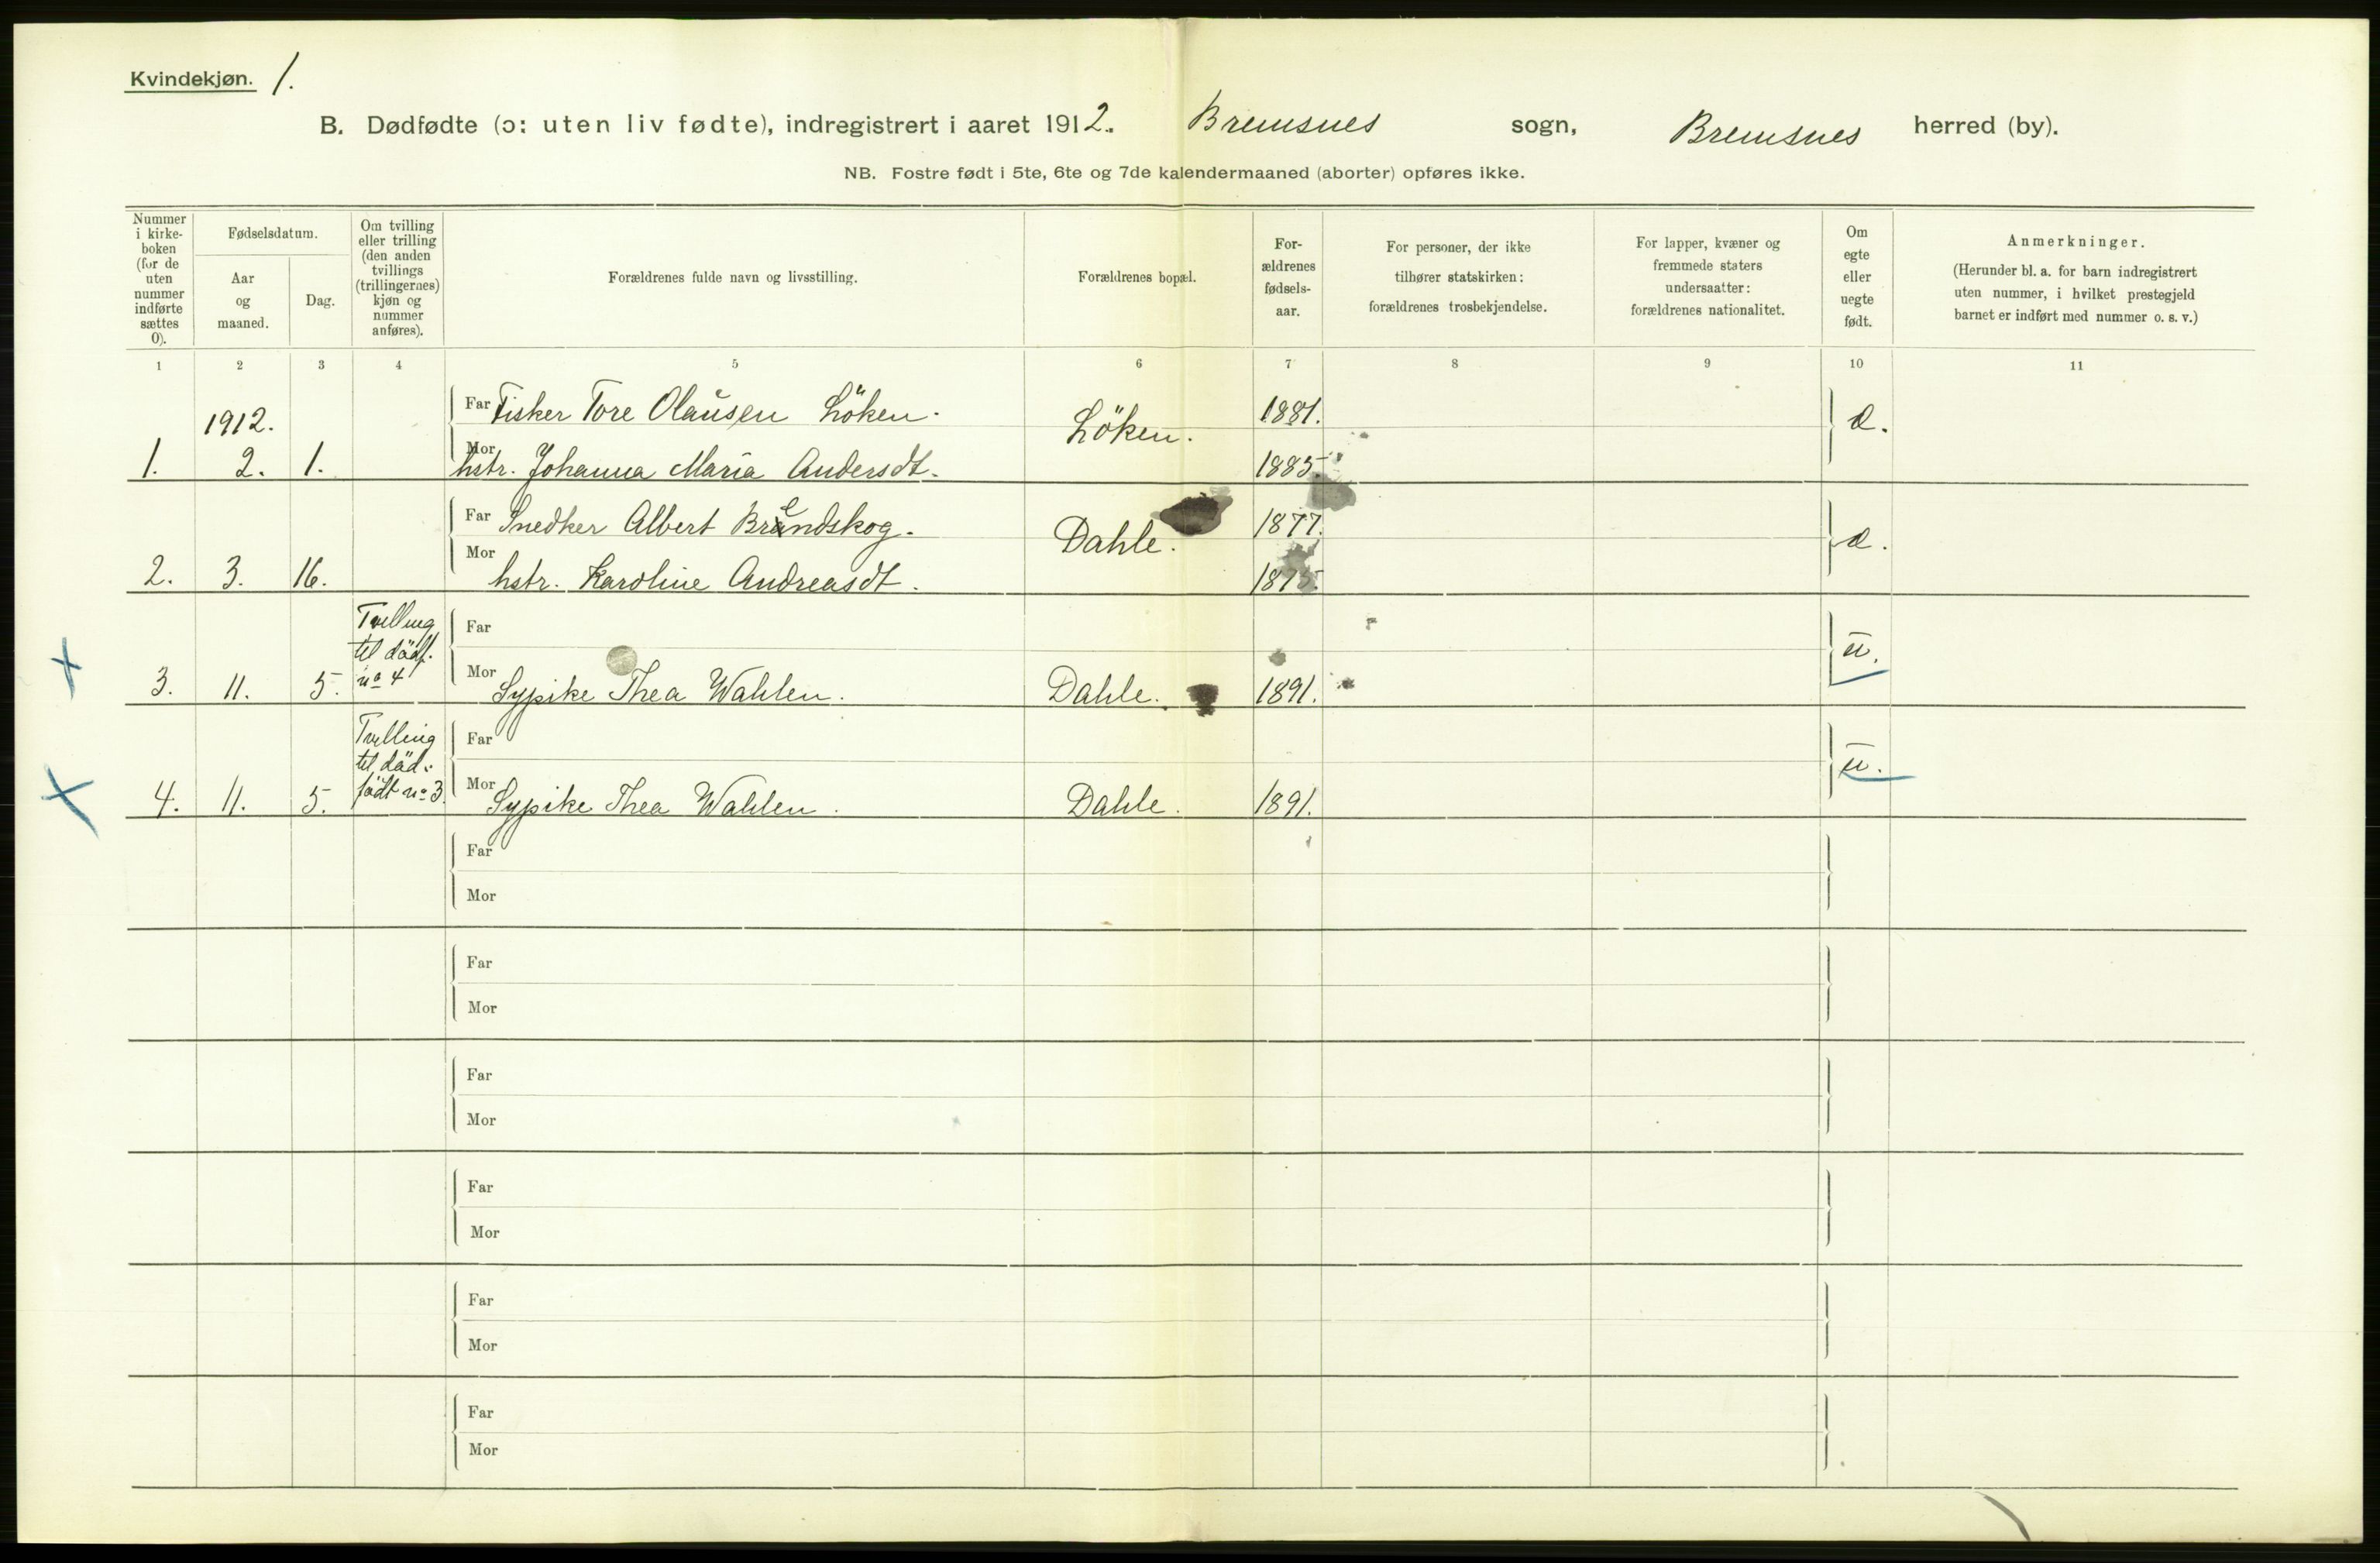 Kvindekjøn. 1.
B. Dødfødte (ɔ: uten liv fødte), indregistrert i aaret 1912. Bremsnes sogn, Bremsnes herred (by).
NB. Fostre født i 5te, 6te og 7de kalendermaaned (aborter) opføres ikke.
Nummer
i kirke-
boken
(for de
uten
nummer
indførte
sættes
0).
Fødselsdatum.
Aar
og
maaned.
Dag.
Om tvilling
eller trilling
(den anden
tvillings
(trillingernes)
kjøn og
nummer
anføres).
Forældrenes fulde navn og livsstilling.
Forældrenes bopæl.
For-
ældrenes
fødsels-
aar.
For personer, der ikke
tilhører statskirken:
forældrenes trosbekjendelse.
For lapper, kvæner og
fremmede staters
undersaatter:
forældrenes nationalitet.
Om
egte
eller
uegte
født.
Anmerkninger.
(Herunder bl. a. for barn indregistrert
uten nummer, i hvilket prestegjeld
barnet er indført med nummer o. s. v.)
1 2 3 4 5 6 7 8 9 10 11
1912.
Far Fisker Tore Olausen Löken. Löken. 1881.
1. 2. 1. Mor hstr. Johanna Maria Andersdt. 1885.
Far Snedker Albert Brendskog. Dahle. 1877.
2. 3. 16. Mor hstr. Karoline Andreasdt. 1875.
Tvilling
til dödf.
no 4
Far
3. 11. 5. Mor Sypike Thea Wahlen. Dahle. 1891. u.
Tvilling
til död.
födt no 3
Far
4. 11. 5. Mor Sypike Thea Wahlen. Dahle. 1891. u.
Far
Mor
Far
Mor
Far
Mor
Far
Mor
Far
Mor
Far
Mor